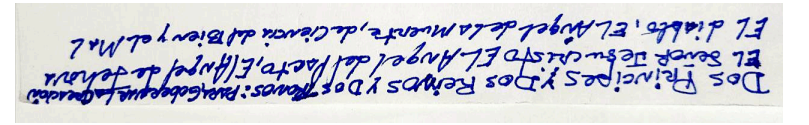 Dos Principes y Dos Reinos y Dos Tronos: Para Gobernar La Creación
EL Señor Jesucristo EL Angel del Pacto, El Angel de Jehova
EL diablo, EL Angel de La Muerte, de Ciencia del Bien y el MaL